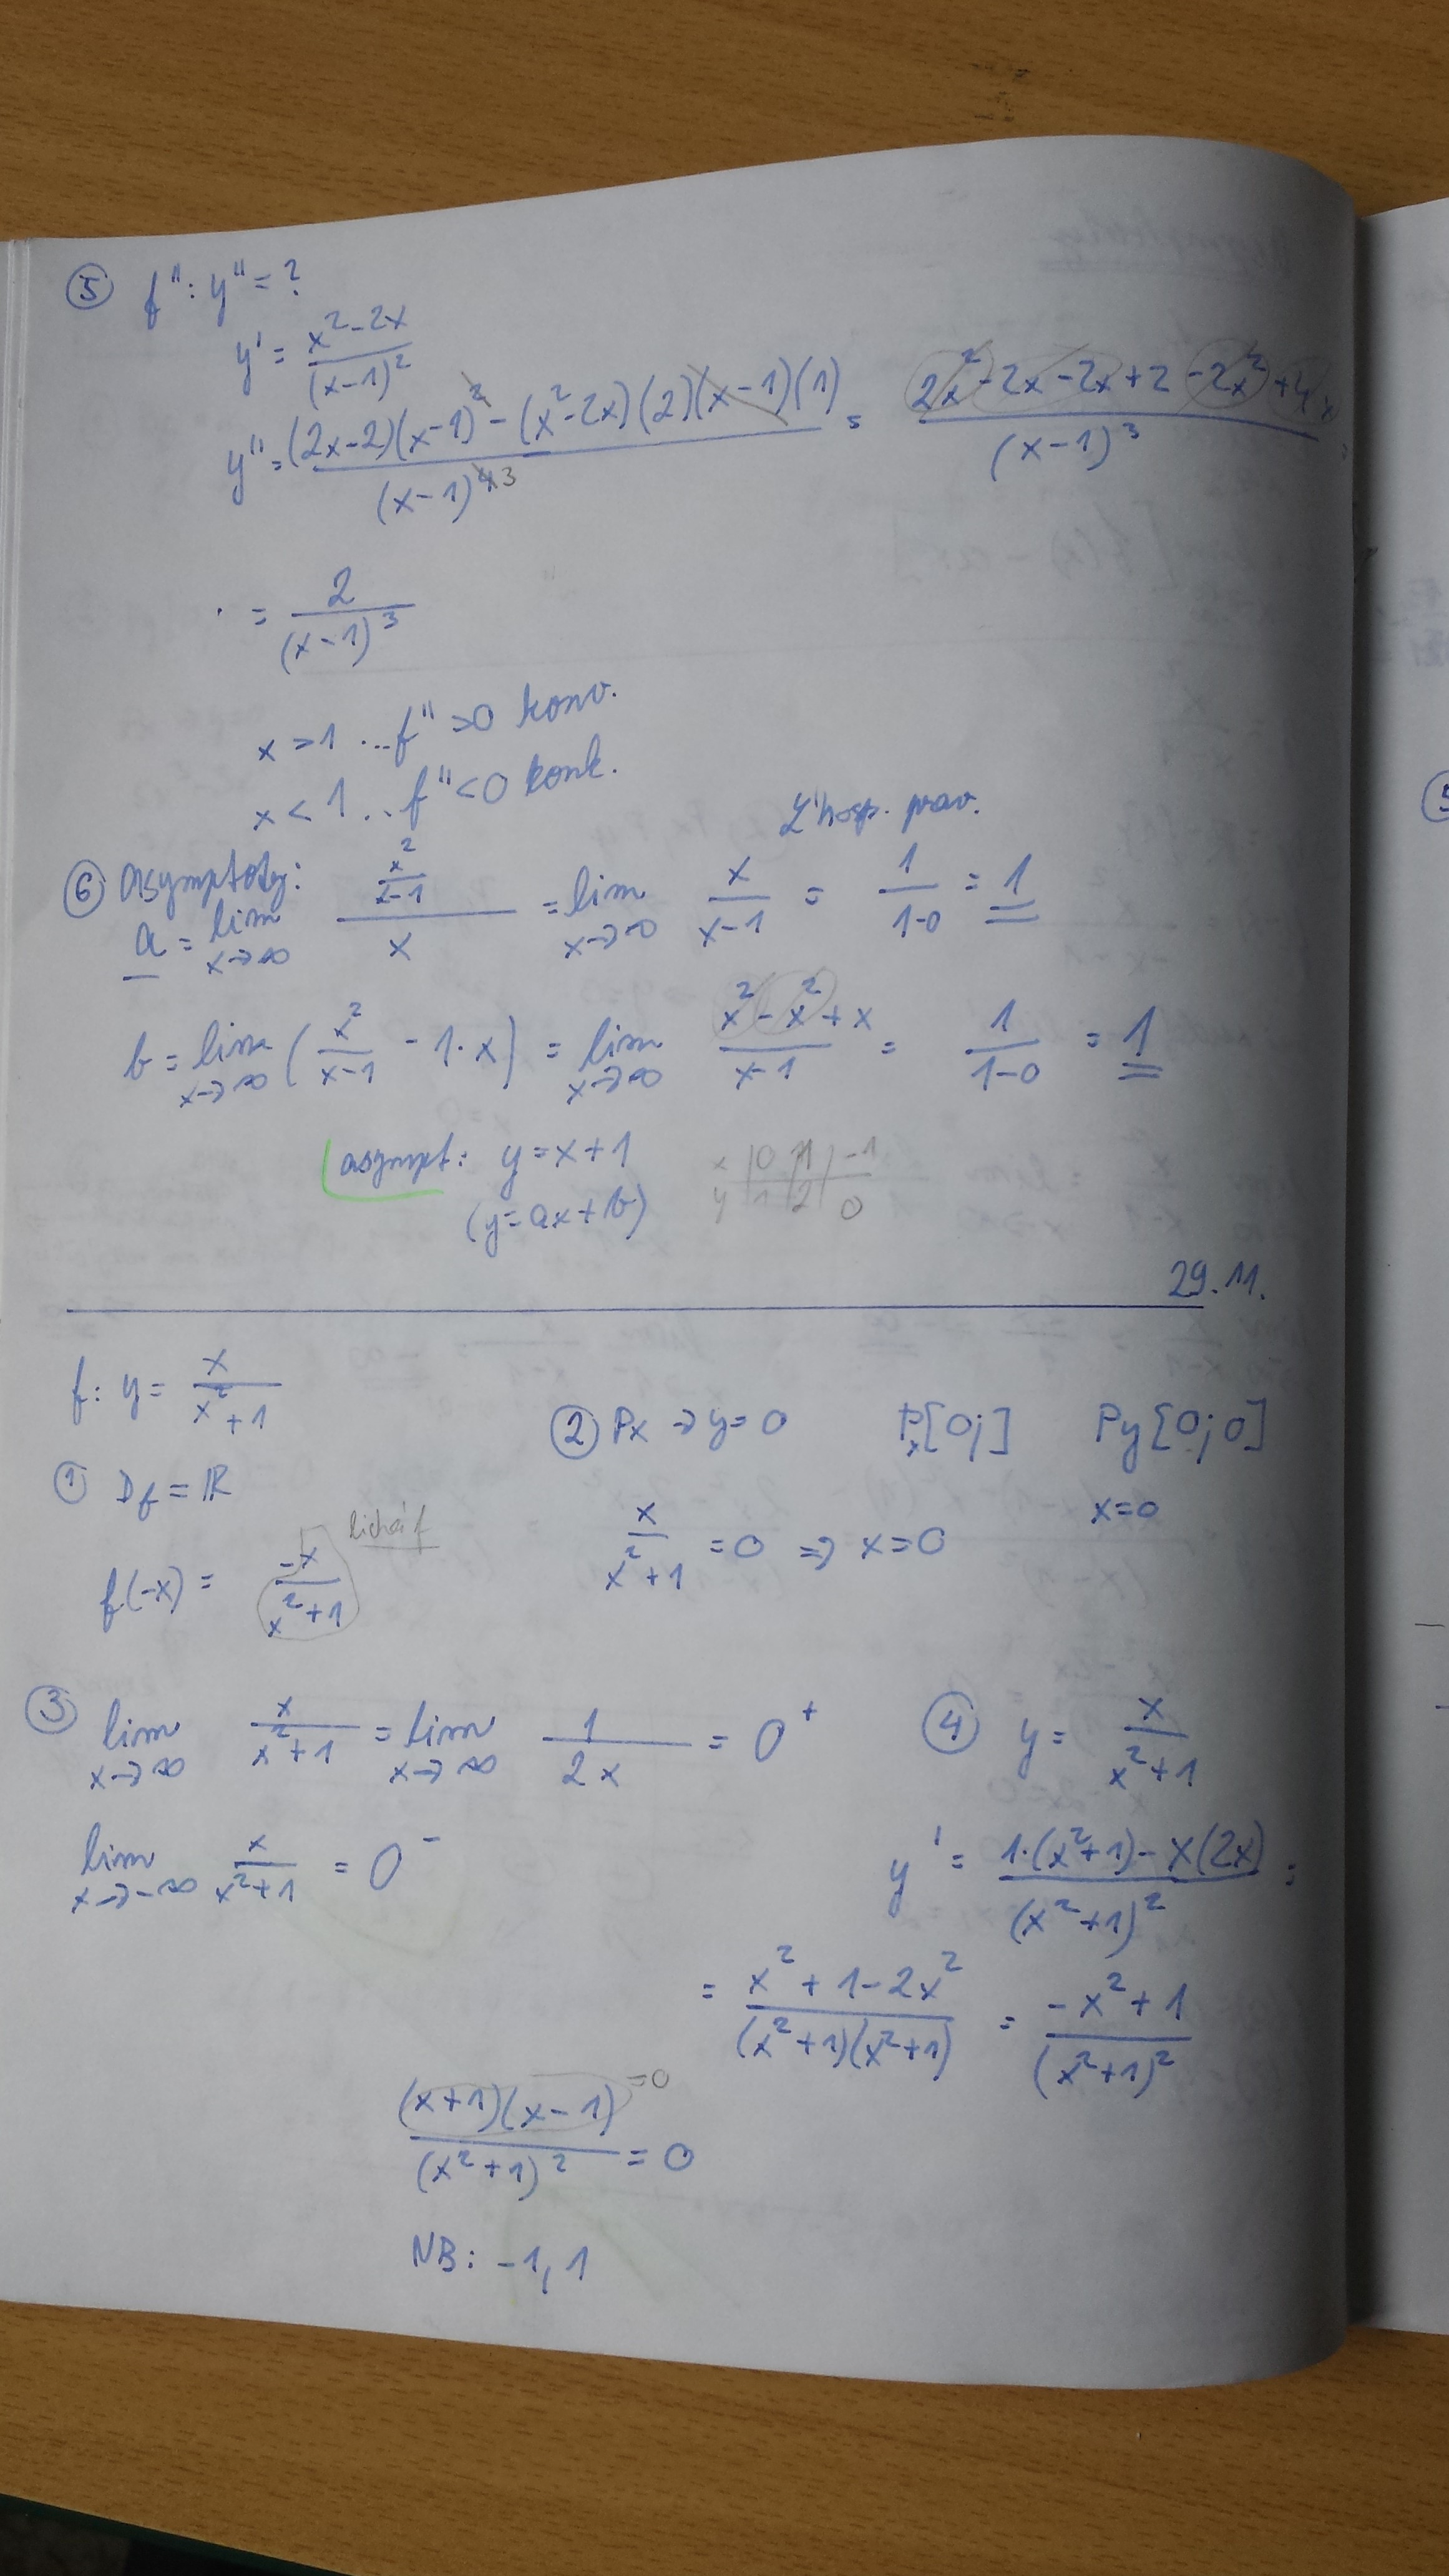 ⑤ f'': y'' = ?
y' = (x² - 2x) / (x-1)²
y'' = ((2x-2)(x-1)² - (x²-2x)(2)(x-1)(1)) / (x-1)⁴ ³ = (2x² - 2x - 2x + 2 - 2x² + 4x) / (x-1)³ =
= 2 / (x-1)³
x > 1 ... f'' > 0 konv.
x < 1 ... f'' < 0 konk.
L'hosp. prav.
⑥ asymptoty:
a = lim x→∞ (x²/(x-1)) / x = lim x→∞ x / (x-1) = 1 / (1-0) = 1
b = lim x→∞ (x²/(x-1) - 1·x) = lim x→∞ (x² - x² + x) / (x-1) = 1 / (1-0) = 1
asympt: y = x+1
x | 0 | 1 | -1
(y = ax+b)
y | 1 | 2 | 0
29.11.
f: y = x / (x²+1)
② Px → y = 0 Px[0;] Py[0;0]
① Df = ℝ
x / (x²+1) = 0 ⇒ x = 0
x = 0
f(-x) = -x / (x²+1) lichá f
③ lim x→∞ x / (x²+1) = lim x→∞ 1 / 2x = 0⁺
lim x→-∞ x / (x²+1) = 0⁻
④ y = x / (x²+1)
y' = (1·(x²+1) - x(2x)) / (x²+1)² =
= (x² + 1 - 2x²) / ((x²+1)(x²+1)) = (-x² + 1) / (x²+1)²
(x+1)(x-1) / (x²+1)² = 0
= 0
NB: -1, 1